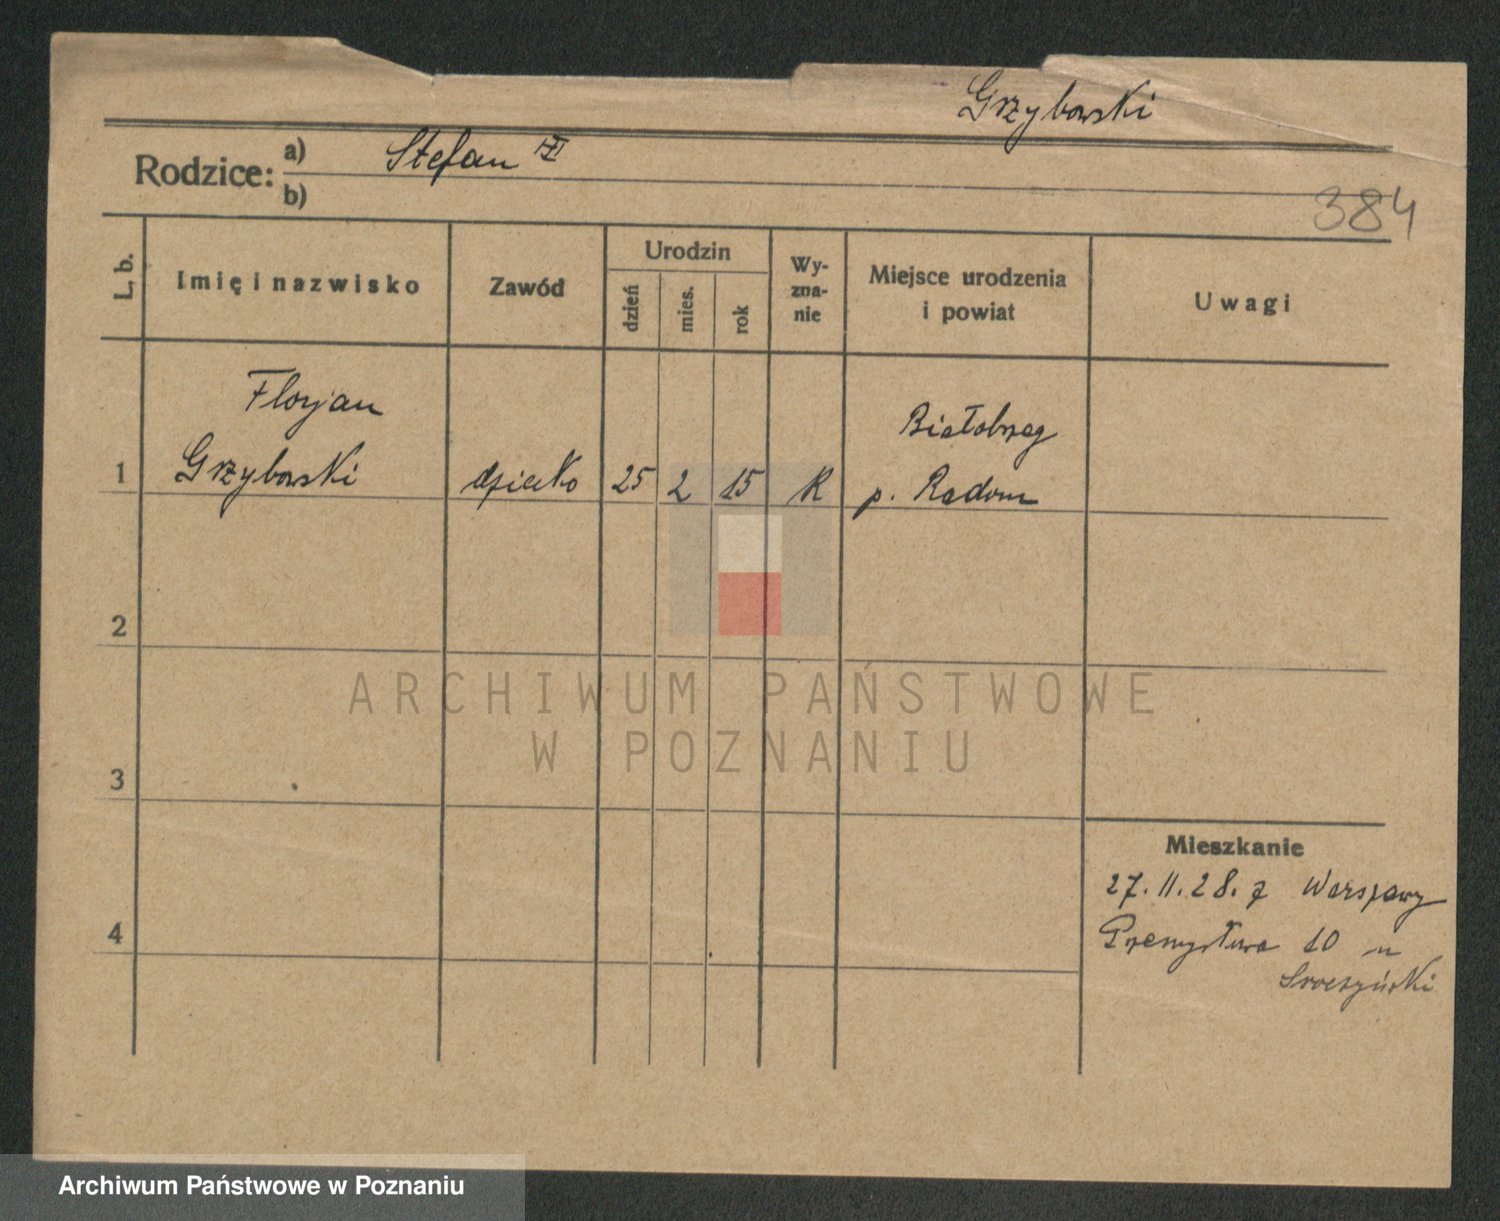 Grzybowski
Rodzice: a) Stefan
b)
384
L. b.
Imię i nazwisko
Zawód
Urodzin
dzień
mies.
rok
Wy-
zna-
nie
Miejsce urodzenia
i powiat
Uwagi
Florjan
Grzybowski
1
dziecko
25
2
15
R
Białobrzeg
p. Radom
2
3
4
Mieszkanie
27. II. 28. z Warszawy
Przemysłowa 10 u
ARCHIWUM PAŃSTWOWE
W POZNANIU
Archiwum Państwowe w Poznaniu